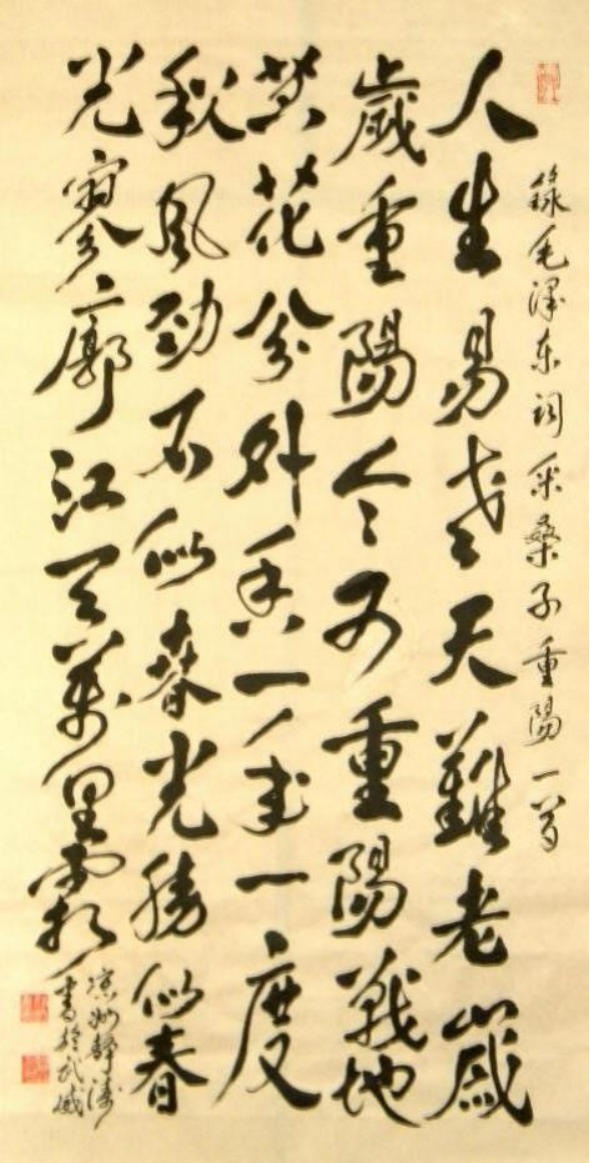 錄毛澤东词采桑子重陽一首
人生易老天難老歲
歲重陽今又重陽戰地
黄花分外香一年一度
秋風勁不似春光勝似春
光寥廓江天萬里霜
凉州静濤
書於武威